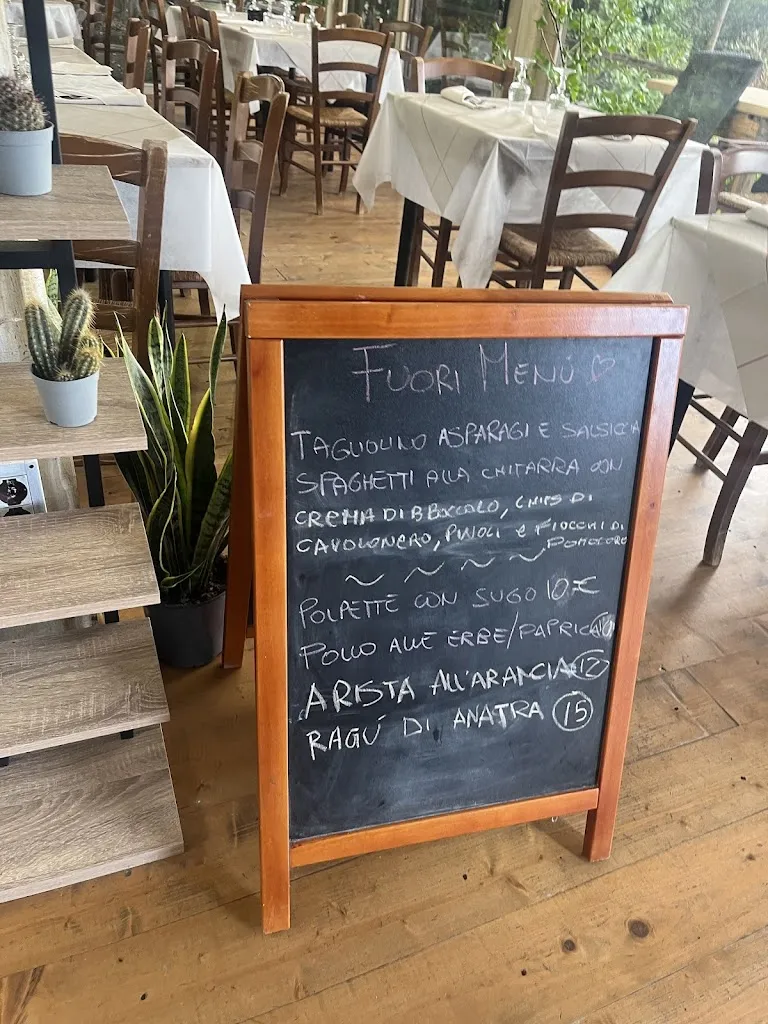 FUORI MENÚ
TAGLIOLINO ASPARAGI E SALSICCIA
SPAGHETTI ALLA CHITARRA CON
CREMA DI BROCCOLO, CHIPS DI
CAVOLONERO, PINOLI E FIOCCHI DI
POMODORO
POLPETTE CON SUGO 10 €
POLLO ALLE ERBE/PAPRICA 10
ARISTA ALL'ARANCIA 12
RAGÚ DI ANATRA 15